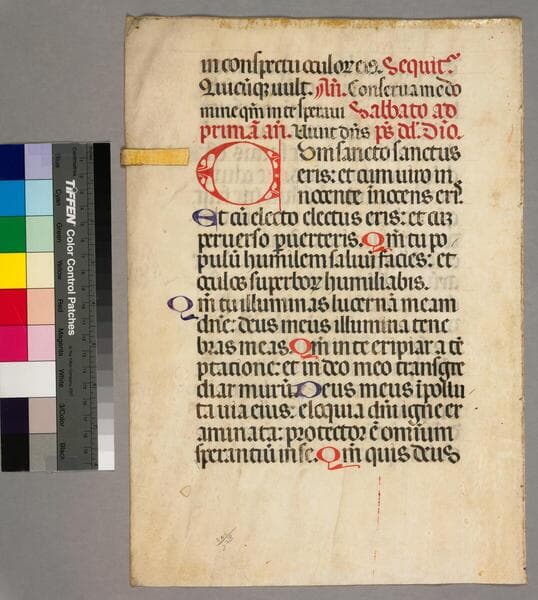 in conspectu oculor eiꝰ. Sequit᷑
Quicūqꝫ uult. Añ. Conserua me do
mine qm̄ in te speraui Sabbato ad
primā añ. Uiuit dn̄s p̄s dd̄. Dīo.
Cum sancto sanctus
eris: et cum uiro in
nocente īnocens erꝭ
Et cū electo electus eris: et cū
peruerso puerteris. Qm̄ tu po
pulū humilem saluū facies: et
oculos superboꝝ humiliabis.
Qm̄ tu illuminas lucernā meam
dn̄e: deus meus illumina tene
bras meas. Qm̄ in te eripiar a tē
ptatione: et in deo meo transg̃re
diar murū. Deus meus īpollu
ta uia eius: eloquia dn̄i igne ex
aminata: protector ē omīum
sperantiū in se. Qm̄ quis deus
TIFFEN Color Control Patches
Blue
Cyan
Green
Yellow
Red
Magenta
White
3/Color
Black